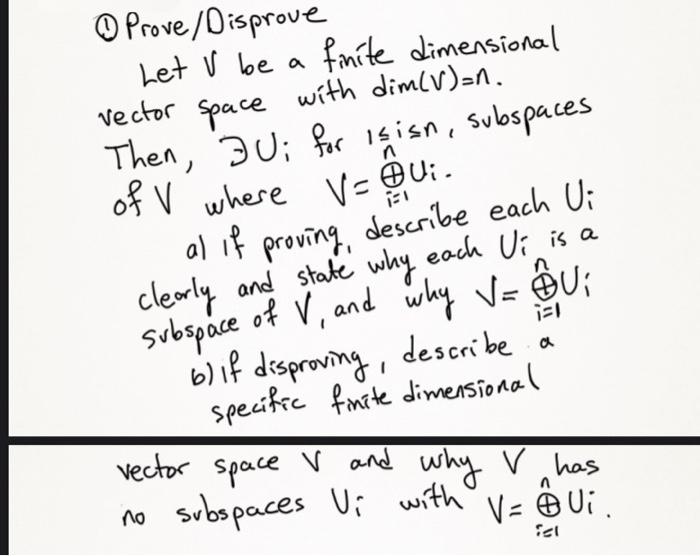 ① Prove/Disprove
Let V be a finite dimensional
vector space with dim(V)=n.
Then, ∃Ui for 1≤i≤n, subspaces
of V where V= n⊕i=1 Ui.
a) if proving, describe each Ui
clearly and state why each Ui is a
subspace of V, and why V= n⊕i=1 Ui
b) if disproving, describe a
specific finite dimensional
vector space V and why V has
no subspaces Ui with V= n⊕i=1 Ui.